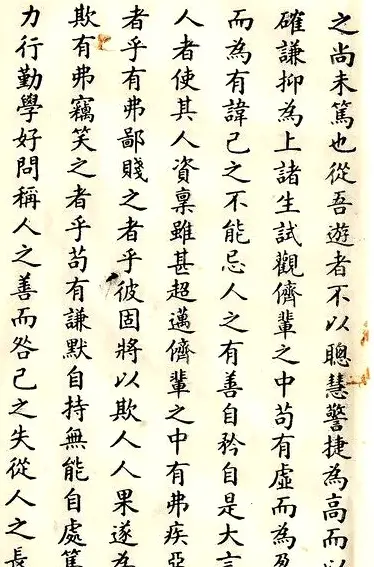 之尚未篤也從吾遊者不以聰慧警捷為高而以
確謙抑為上諸生試觀儕輩之中苟有虛而為盈
而為有諱己之不能忌人之有善自矜自是大言
人者使其人資稟雖甚超邁儕輩之中有弗疾惡
者乎有弗鄙賤之者乎彼固將以欺人人果遂為
欺有弗竊笑之者乎苟有謙默自持無能自處篤
力行勤學好問稱人之善而咎己之失從人之長